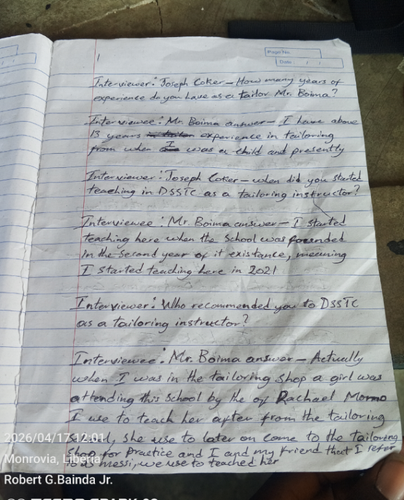 Page No:
Date:
1
Interviewer: Joseph Coker – How many years of
experience do you have as a tailor Mr. Boima?
Interviewee: Mr. Boima answer – I have above
15 years experience in tailoring
from when I was a child and presently
Interviewer: Joseph Coker – when did you started
teaching in DSSTC as a tailoring instructor?
Interviewee: Mr Boima answer – I started
teaching here when the School was founded
in the second year of it existance, meaning
I started teaching here in 2021
Interviewer: Who recommended you to DSSTC
as a tailoring instructor?
Interviewee: Mr. Boima answer – Actually
when I was in the tailoring shop a girl was
attending this school by the of Rachael Momo
I use to teach her after from the tailoring
she use to later on come to the tailoring
Shop for practice and I and my friend that I refer
messi, we use to teached her
2026/04/17 12:01
Monrovia, Liberia
Robert G.Bainda Jr.